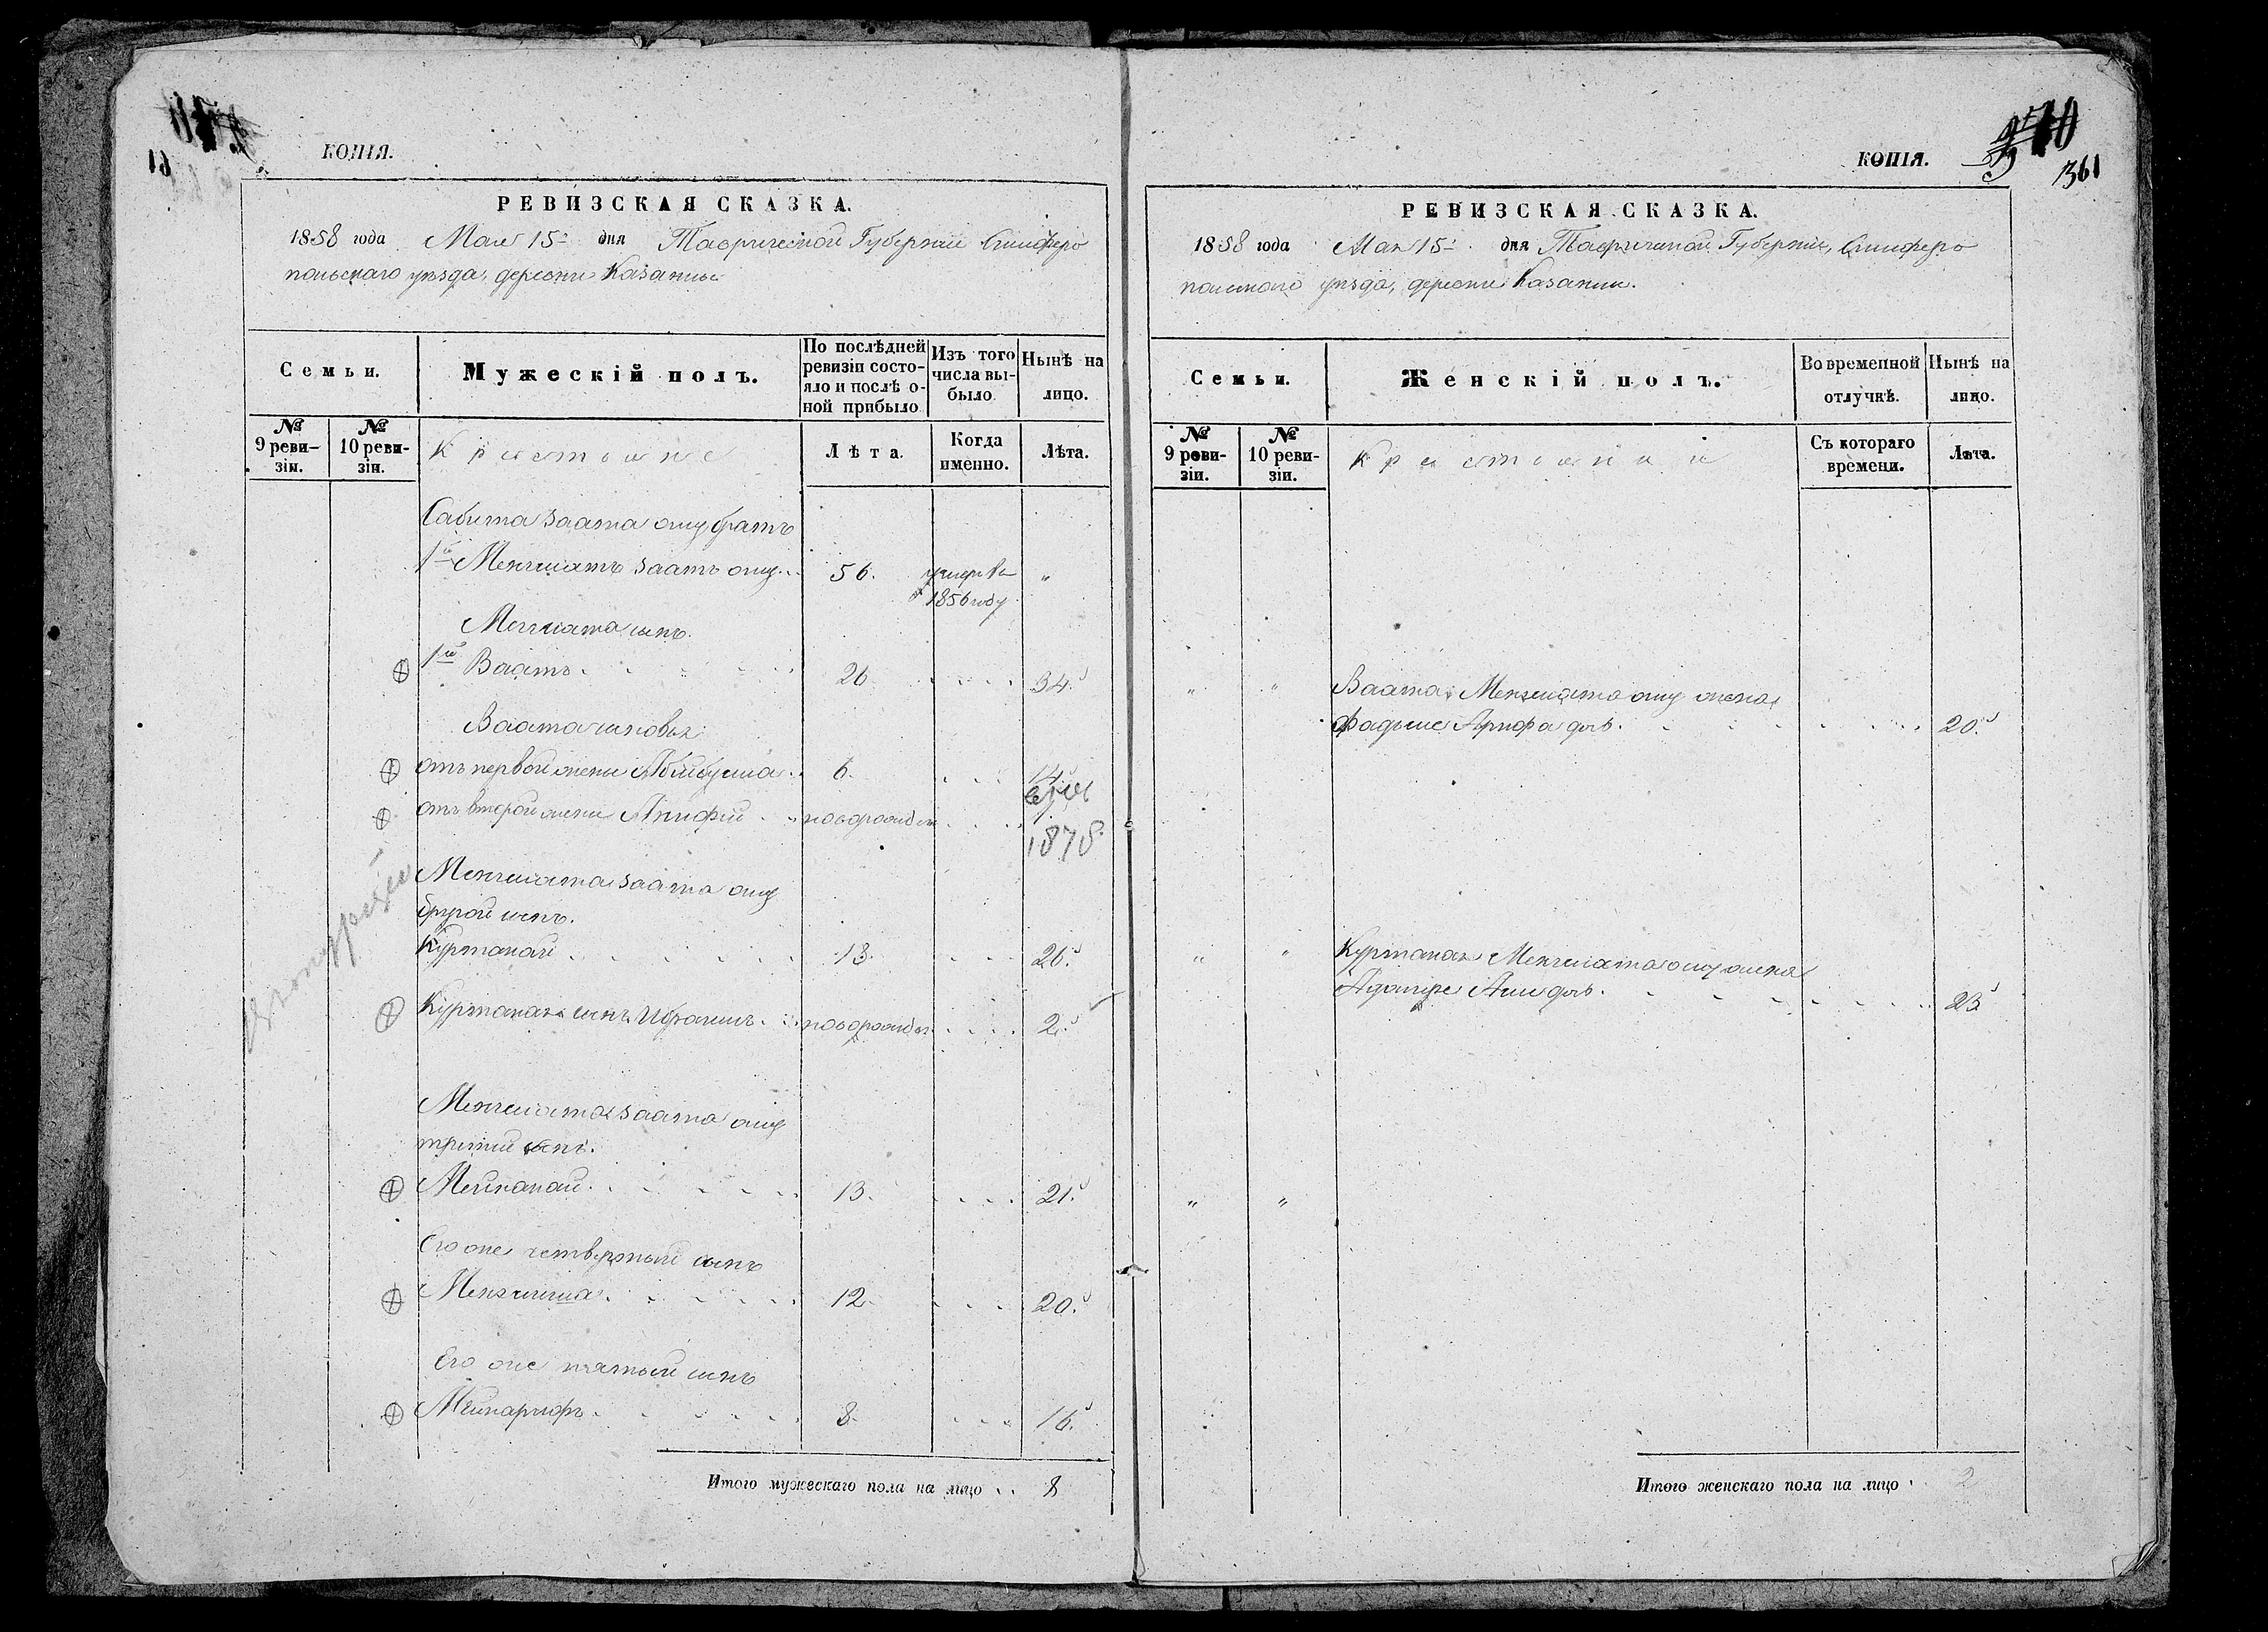 КОПІЯ.
РЕВИЗСКАЯ СКАЗКА.
1858 года Мая 15 дня Таврической Губерніи Симферо
польскаго уѣзда, деревни Казанлы
Семьи.
Мужескій полъ.
По послѣдней ревизіи состояло и послѣ оной прибыло
Изъ того числа выбыло
Нынѣ на лицо.
№ 9 ревизіи.
№ 10 ревизіи.
Крестьяне
Лѣта.
Когда именно.
Лѣта.
Сабита Заата оглу братъ
1й Менглиатъ Заатъ оглу 56. умеръ въ 1856 году "
Менглиата сынъ.
1й Ваатъ 26 34.
Ваата сыновья
отъ первой жены 6. 14
отъ второй жены новорожден
1878.
Менглиата Заата оглу
другой сынъ.
Куртанай 18. 26.
Куртаная сынъ Ибраимъ новорожден 2.
Менглиата Заата оглу
третій сынъ.
Меинанай 13. 21.
Его же четвертый сынъ
Менглиша 12. 20.
Его же пятый сынъ
Меинарифъ 8. 16.
Итого мужескаго пола на лицо 8
КОПІЯ.
361
РЕВИЗСКАЯ СКАЗКА.
1858 года Мая 15 дня Таврической Губерніи, Симферо
польскаго уѣзда, деревни Казанлы.
Семьи.
Женскій полъ.
Во временной отлучкѣ.
Нынѣ на лицо.
№ 9 ревизіи.
№ 10 ревизіи.
Съ котораго времени.
Лѣта.
" " Ваата Менглиата оглу жена
Фадьме Арифа дочь. 20.
" " Куртаная Менглиата оглу жена
Али дочь. 23
" "
Итого женскаго пола на лицо 2